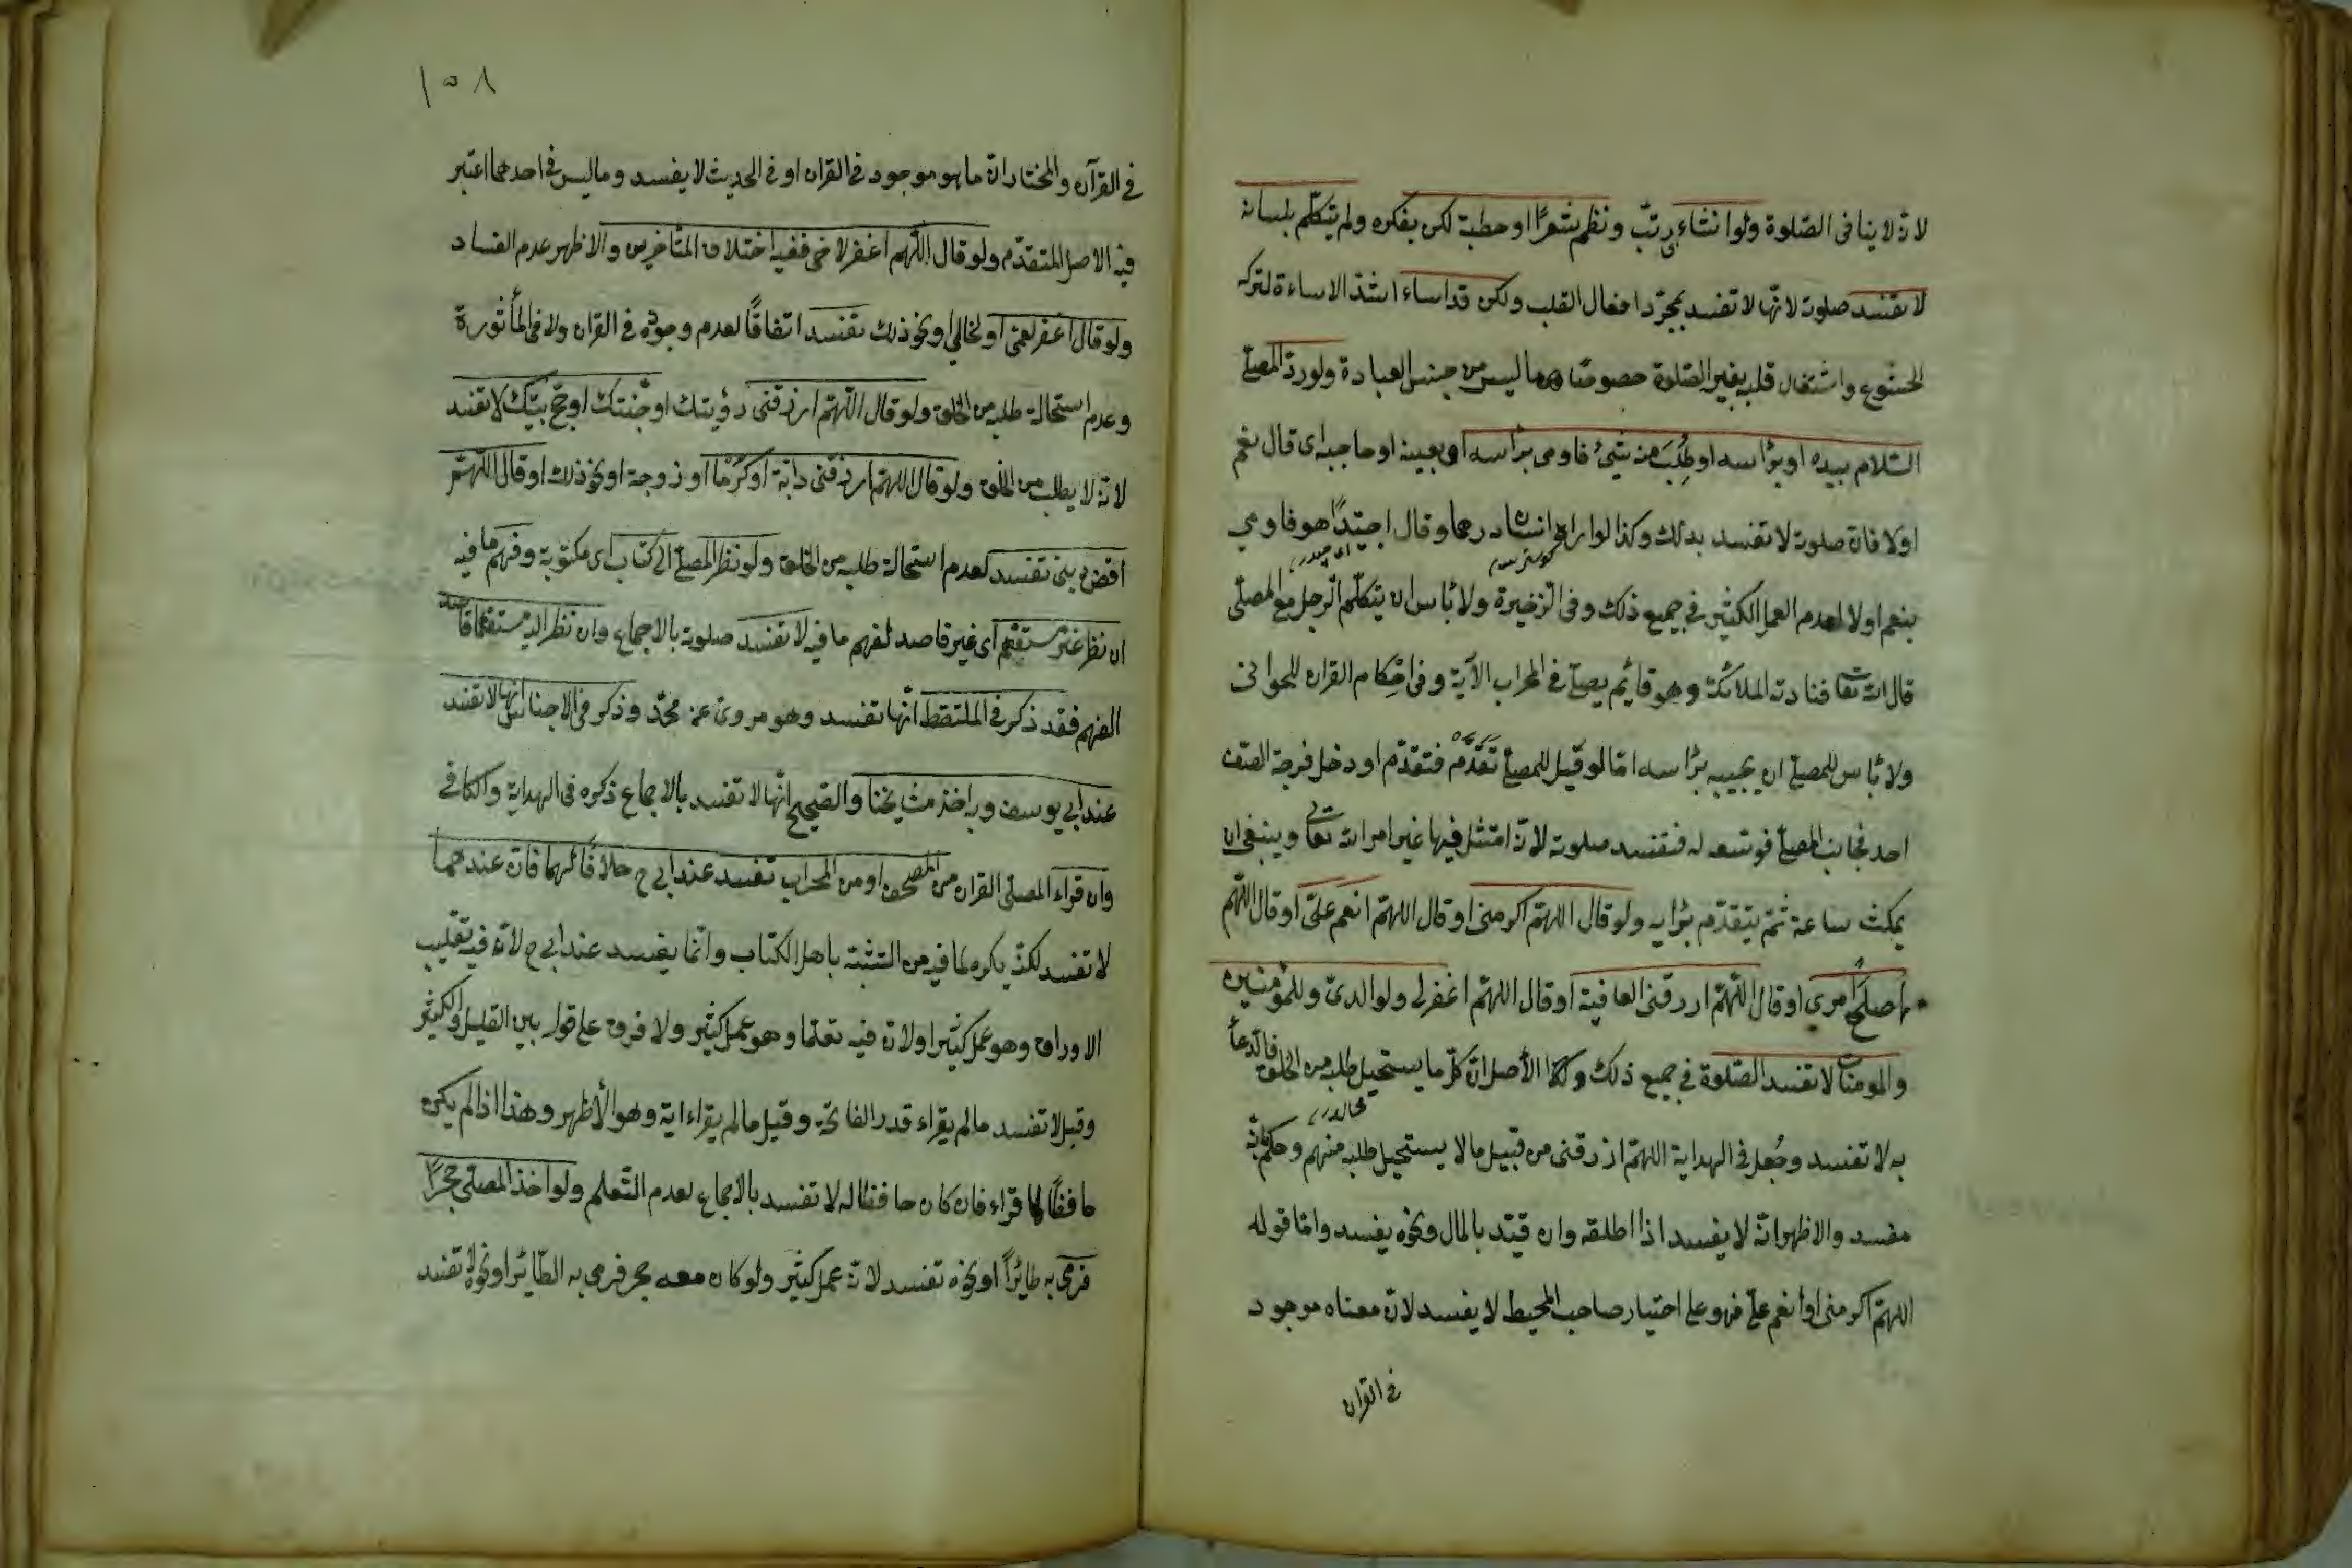 لانه لا ينافى الصلوة ولو انشاء رتب ونظم شعرًا او خطبة لكن بفكره ولم يتكلم بلسانه
لا تفسد صلوته لانها لا تفسد بمجرد افعال القلب ولكن قد اساء اشد الاساءة لتركه
الخشوع واشتغال قلبه بغير الصلوة خصوصًا مما ليس من جنس العبادة ولو رد المصلى
السلام بيده او براسه او طُلِبَ منه شيئ فاومى براسه او بعينه او حاجبه اى قال نعم
او لا فان صلوته لا تفسد بذلك وكذا لو اراه انسان درهما وقال اجيّدٌ هو فاومى
بنعم او لا لعدم العمل الكثير فى جميع ذلك وفى الذخيرة ولا باس ان يتكلم الرجل مع المصلى
قال الله تعا فنادته الملائكة وهو قائم يصلى فى المحراب الآية وفى احكام القران للحوانى
ولا باس للمصلى ان يجيبه براسه اما لو قيل للمصلى تَقَدَّمْ فتقدّم او دخل فرجة الصف
احد فجانب المصلى فوسّعه له فتفسد صلوته لانه امتثل فيها غير امر الله تعالى وينبغى ان
يمكث ساعة ثم يتقدم برايه ولو قال اللهم اكرمنى او قال اللهم انعم علىّ او قال اللهم
اصلح امرى او قال اللهم ارزقنى العافية او قال اللهم اغفر لى ولوالدىّ وللمؤمنين
والمومنات لا تفسد الصلوة فى جميع ذلك والأصل ان كل ما يستحيل طلبه من الخلق فالدعأ
به لا تفسد وجُعل فى الهداية اللهم ارزقنى من قبيل ما لا يستحيل طلبه منهم وحكم بانه
مفسد والاظهر انه لا يفسد اذا اطلقه وان قيّد بالمال ونحوه يفسد واما قوله
اللهم اكرمنى او أنعم علىّ فهو على اختيار صاحب المحيط لا يفسد لان معناه موجود
فى القران
١٥٨
فى القرآن والمختار ان ما هو موجود فى القران او فى الحديث لا يفسد وما ليس فى احدهما اعتبر
فيه الاصل المتقدّم ولو قال اللهم اغفر لاخى ففيه اختلاف المتأخرين والاظهر عدم الفساد
ولو قال اغفر لعمى او لخالى او نحو ذلك تفسد اتفاقًا لعدم وجوده فى القران ولا فى المأثورة
وعدم استحالة طلبه من الخلق ولو قال اللهم ارزقنى رؤيتك او جنّتك او حج بيتك لا تفسد
لانه لا يطلب من الخلق ولو قال اللهم ارزقنى دابّة او كرمًا او زوجة او نحو ذلك او قال اللهم
اقض دينى تفسد لعدم استحالة طلبه من الخلق ولو نظر المصلى الى كتاب اى مكتوبة وفهم ما فيه
ان نظر غير مستفهم اى غير قاصد لفهم ما فيه لا تفسد صلوته بالاجماع وان نظر اليه مستفهما قاصد
الفهم فقد ذكر فى الملتقط انّها تفسد وهو مروى عن محمّد وذكر فى الاجناس انها لا تفسد
عند ابى يوسف وبه اخذ مشايخنا والصحيح انّها لا تفسد بالاجماع ذكره فى الهداية والكافى
وان قراء المصلى القران من المصحف او من المحراب تفسد عند ابى ح خلافًا لهما فان عندهما
لا تفسد لكنّه يكره لما فيه من التشبّه باهل الكتاب وانّما يفسد عند ابى ح لانّه فيه تقليب
الاوراق وهو عمل كثير او لانه فيه تعلّما وهو عمل كثير ولا فرق على قوله بين القليل والكثير
وقيل لا تفسد ما لم يقراء قدر الفاتحة وقيل ما لم يقراء اية وهو الأظهر وهذا اذا لم يكن
حافظًا لما قراء فان كان حافظا له لا تفسد بالاجماع لعدم التّعلم ولو اخذ المصلى حجرًا
فرمى به طائرًا او نحوه تفسد لانّه عمل كثير ولو كان معه حجر فرمى به الطّائر او نحوه لا تفسد